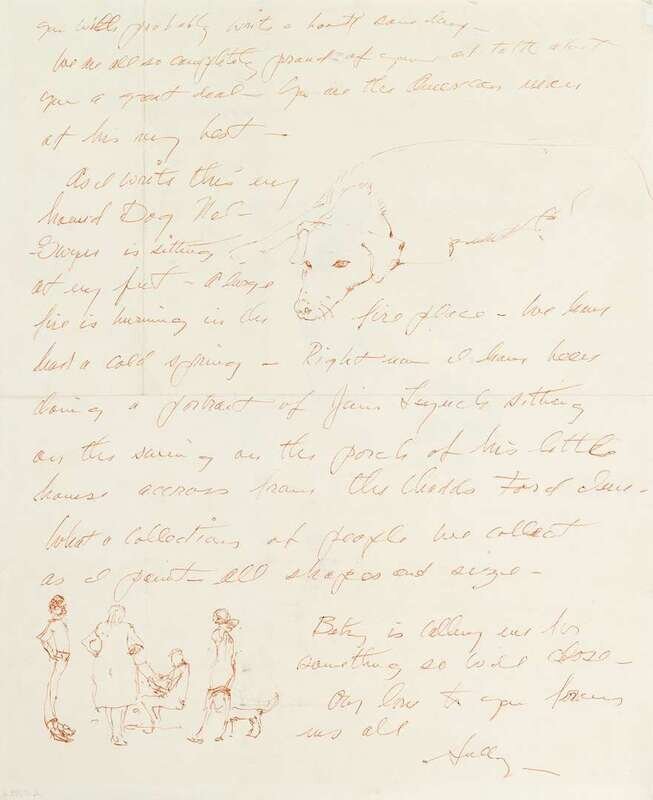 you will probably write a book some day –
We are all so completely proud of you and talk about
you a great deal – You are the American man
at his very best –
As I write this my
hound Dog Nel –
is sitting
at my feet – a large
fire is burning in the fire place – We have
had a cold spring – Right now I have been
doing a portrait of Jim sitting
on the swing on the porch of his little
house accross from the Chadds Ford Inn –
What a collections of people we collect
as I paint – all shapes and size –
Betsy is calling me for
something so will close –
Our love to you from
us all